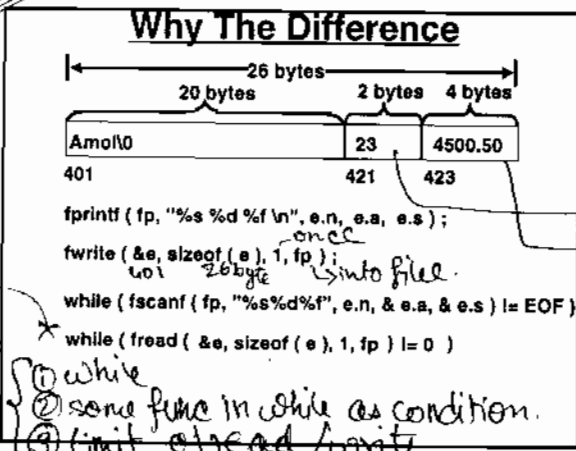 Why The Difference
26 bytes
20 bytes 2 bytes 4 bytes
Amol\0 23 4500.50
401 421 423
fprintf ( fp, "%s %d %f \n", e.n, e.a, e.s ) ;
once
fwrite ( &e, sizeof ( e ), 1, fp ) ;
401 26byte into file.
while ( fscanf ( fp, "%s%d%f", e.n, & e.a, & e.s ) != EOF )
while ( fread ( &e, sizeof ( e ), 1, fp ) != 0 )
① while
② some func in while as condition.
③ limit of read / write